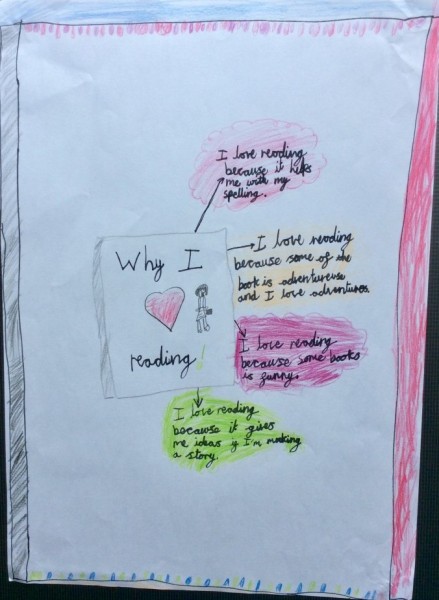 I love reading
because it helps
me with my
spelling.
Why I
reading!
I love reading
because some of me
book is adventureuse
and I love adventures.
I love reading
because some books
is funny.
I love reading
because it gives
me ideas if I'm making
a story.